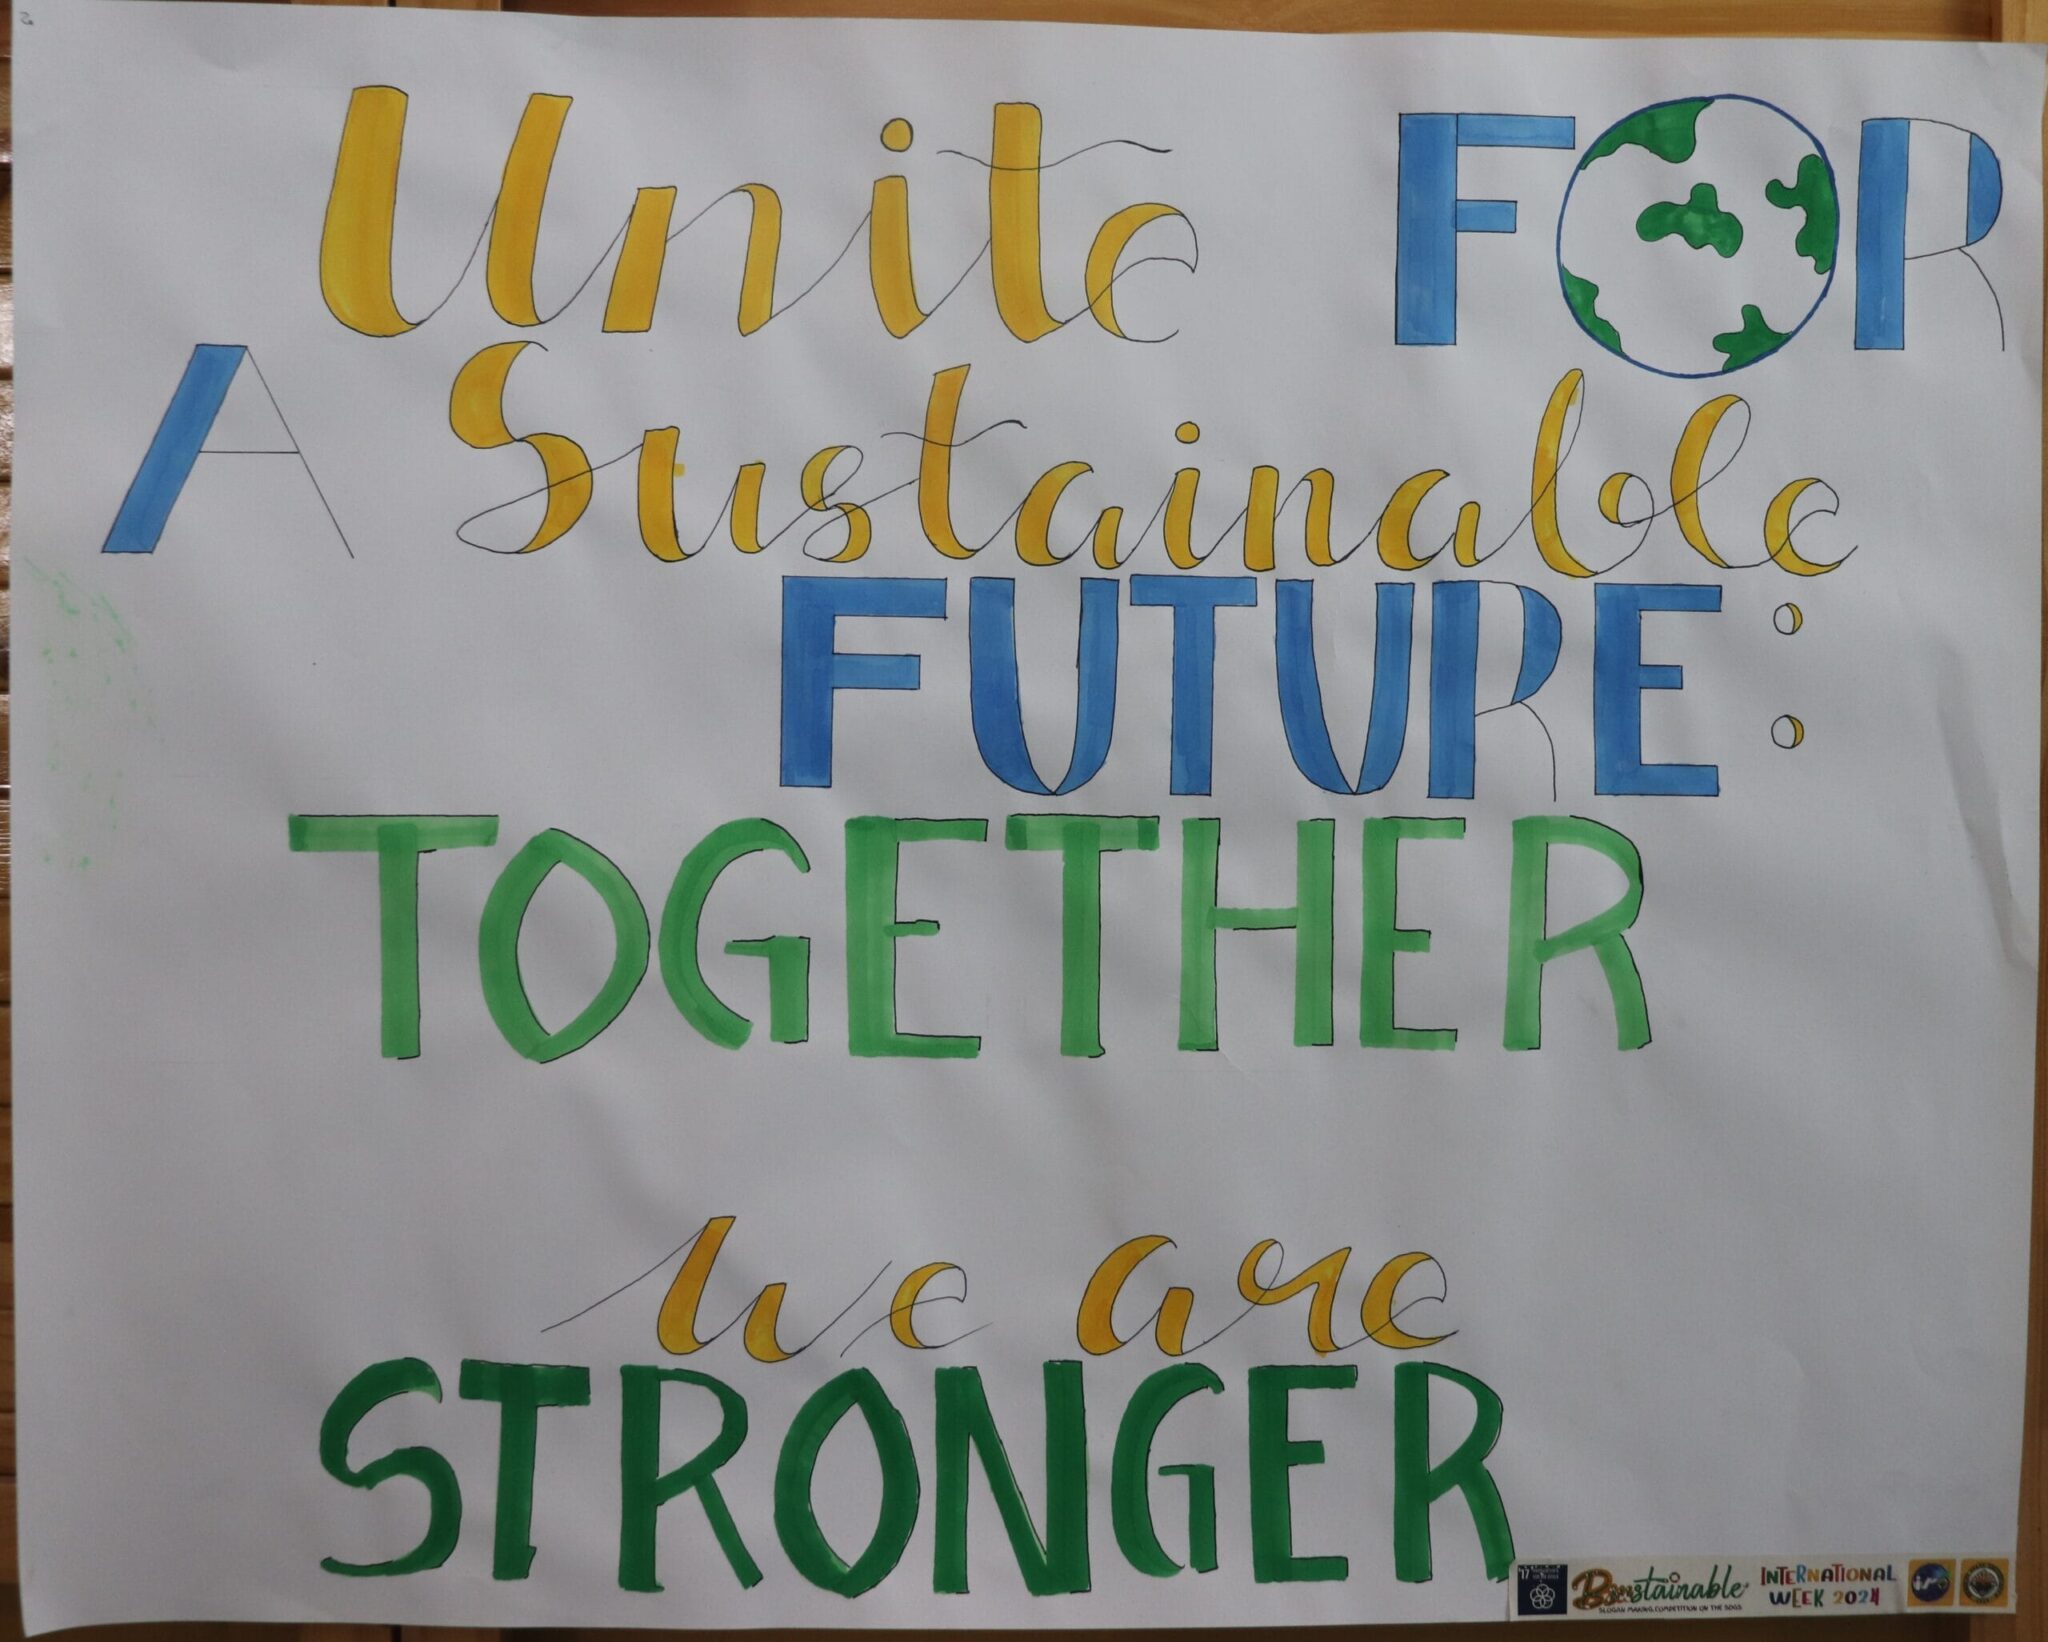 Unite FOR
A Sustainable
FUTURE:
TOGETHER
we are
STRONGER
17
SLOGAN MAKING COMPETITION ON THE SDGS
INTERNATIONAL
WEEK 2024